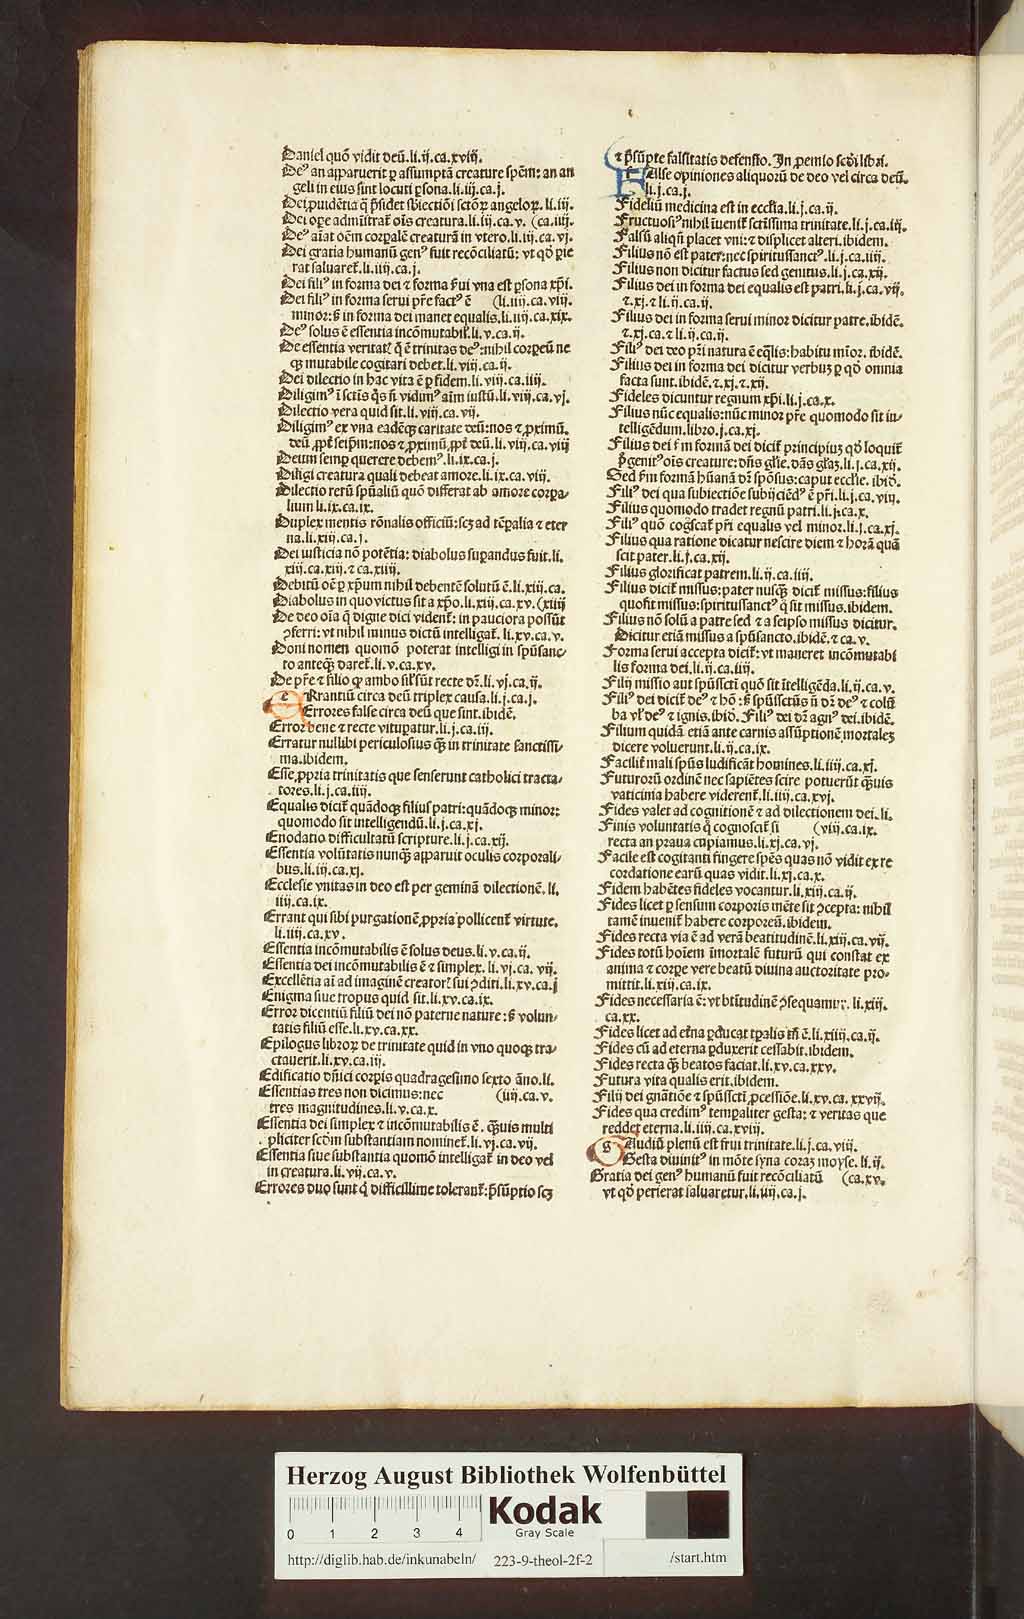 Daniel quõ vidit deũ.li.ij.ca.xviij.
Deꝰ an apparuerit ꝑ assumptã creature spẽm: an an
geli in eius sint locuti ꝑsona.li.iij.ca.j.
Dei ꝓuidẽtia q̃ p̃sidet sbiectiõi sctõꝝ angeloꝝ.li.iij.
Dei oꝑe admĩstrat᷑ oĩs creatura.li.iij.ca.v. (ca.iiij.
Deꝰ aĩat oẽm corꝑalẽ creaturã in vtero.li.iij.ca.vj.
Dei gratia humanũ genꝰ fuit recõciliatũ: vt qđ ꝑie
rat saluaret᷑.li.iiij.ca.j.
Dei filiꝰ in forma dei ⁊ forma s̃ui vna est ꝑsona xp̃i.
Dei filiꝰ in forma serui p̃re factꝰ ẽ (li.iiij.ca.viij.
minor: s̃ in forma dei manet equalis.li.iiij.ca.xix.
Deꝰ solus ẽ essentia incõmutabil᷑.li.v.ca.ij.
De essentia veritat᷑ q̃ ẽ trinitas deꝰ: nihil corꝑeũ ne
qꝫ mutabile cogitari debet.li.viij.ca.ij.
Dei dilectio in hac vita ẽ ꝑ fidem.li.viij.ca.iiij.
Diligimꝰ ĩ sctis q̃s ñ vidimꝰ aĩm iustũ.li.viij.ca.vj.
Dilectio vera quid sit.li.viij.ca.vij.
Diligimꝰ ex vna eadẽqꝫ caritate deũ: nos ⁊ ꝓximũ.
deũ ꝓpt᷑ seip̃m: nos ⁊ ꝓximũ ꝓpt᷑ deũ.li.viij.ca.viij
Deum semꝑ querere debemꝰ.li.ix.ca.j.
Diligi creatura quali debeat amore.li.ix.ca.viij.
Dilectio rerũ sp̃ualiũ quõ differat ab amore corꝑa-
lium li.ix.ca.ix.
Duplex mentis rõnalis officiũ: scꝫ ad tẽꝑalia ⁊ eter
na.li.xiij.ca.j.
Dei iusticia nõ potẽtia: diabolus suꝑandus fuit.li.
xiij.ca.xiij.⁊ ca.xiiij.
Debitũ oẽ ꝑ xp̃um nihil debentẽ solutũ ẽ.li.xiij.ca.
Diabolus in quo victus sit a xp̃o.li.xiij.ca.xv.(xiiij
De deo oĩa q̃ digne dici vident᷑: in pauciora possũt
ꝯferri: vt nihil minus dictũ intelligat᷑. li.xv.ca.v.
Doni nomen quomõ poterat intelligi in sp̃usanc-
to anteqꝫ daret᷑.li.v.ca.xv.
De p̃re ⁊ filio qꝫ ambo sil᷑ sũt recte dr̃.li.vj.ca.ij.
e Rrantiũ circa deũ triplex causa.li.j.ca.j.
Errores false circa deũ que sint.ibidẽ.
Error bene ⁊ recte vituꝑatur.li.j.ca.iij.
Erratur nullibi periculosius qꝫ̃ in trinitate sanctissi-
ma.ibidem.
Esse ꝓpria trinitatis que senserunt catholici tracta-
tores.li.j.ca.iiij.
Equalis dicit᷑ quãdoqꝫ filius patri: quãdoqꝫ minor:
quomodo sit intelligendũ.li.j.ca.xj.
Enodatio difficultatũ scripture.li.j.ca.xij.
Essentia volũtatis nunqꝫ̃ apparuit oculis corporali-
bus.li.iij.ca.xj.
Ecclesie vnitas in deo est per geminã dilectionẽ.li.
iiij.ca.ix.
Errant qui sibi purgationẽ ꝓpria pollicent᷑ virtute.
li.iiij.ca.xv.
Essentia incõmutabilis ẽ solus deus.li.v.ca.ij.
Essentia dei incõmutabilis ẽ ⁊ simplex. li.vj.ca. vij.
Excellẽtia aĩ ad imaginẽ creator᷑ sui ꝯditi.li.xv.ca.j
Enigma siue tropus quid sit.li.xv.ca.ix.
Error dicentiũ filiũ dei nõ paterne nature: s̃ volun-
tatis filiũ esse.li.xv.ca.xx.
Epilogus libroꝝ de trinitate quid in vno quoqꝫ tra-
ctauerit.li.xv.ca.iij.
Edificatio dñici corꝑis quadragesimo sexto ãno.li.
Essentias tres non dicimus: nec (iiij.ca.v.
tres magnitudines.li.v.ca.x.
Essentia dei simplex ⁊ incõmutabilis ẽ. qꝫ̃uis multi
pliciter scd̃m substantiam nominet᷑.li.vj.ca.vij.
Essentia siue substantia quomõ intelligat᷑ in deo vel
in creatura.li.vij.ca.v.
Errores duo sunt q̃ difficillime tolerant᷑: p̃sũptio scꝫ
⁊ p̃sũpte falsitatis defensio. Jn ꝓemio scđi libri.
F Alse opiniones aliquorũ de deo vel circa deũ.
li.j.ca.j.
Fideliũ medicina est in eccl̃ia.li.j.ca.ij.
Fructuosiꝰ nihil iuenit᷑ sctissima trinitate.li.j.ca.iij.
Falsũ aliqñ placet vni: ⁊ displicet alteri.ibidem.
Filius nõ est pater: nec spiritussanctꝰ.li.j.ca.iiij.
Filius non dicitur factus sed genitus.li.j.ca.xij.
Filius dei in forma dei equalis est patri.li.j.ca.vij.
⁊.xj.⁊ li.ij.ca.ij.
Filius dei in forma serui minor dicitur patre.ibidẽ.
⁊.xj.ca.⁊ li.ij.ca.ij.
Filiꝰ dei deo p̃ri natura ẽ eq̃lis: habitu mĩor. ibidẽ.
Filius dei in forma dei dicitur verbuꝫ ꝑ qđ omnia
facta sunt.ibidẽ.⁊.xj.⁊.xij.
Fideles dicuntur regnum xp̃i.li.j.ca.x.
Filius nũc equalis: nũc minor p̃re quomodo sit in-
telligẽdum.libro.j.ca.xj.
Filius dei s̃m formã dei dicit᷑ principiuꝫ qđ loquit᷑
p̃genitꝰ oĩs creature: dñs gl̃ie.dãs gl̃aꝫ.li.j.ca.xij.
Sed s̃m formã hũanã dr̃ spõsus: caput eccl̃ie. ibiđ.
Filiꝰ dei qua subiectiõe subijciẽdꝰ ẽ p̃ri.li.j.ca.viij.
Filius quomodo tradet regnũ patri.li.j.ca.x.
Filiꝰ quõ cogscat᷑ p̃ri equalis vel minor.li.j.ca.xj.
Filius qua ratione dicatur nescire diem ⁊ horã quã
scit pater.li.j.ca.xij.
Filius glorificat patrem.li.ij.ca.iiij.
Filius dicit᷑ missus: pater nusqꝫ̃ dicit᷑ missus: filius
quofit missus: spiritussanctꝰ q̃ sit missus.ibidem.
Filius nõ solũ a patre sed ⁊ a seipso missus dicitur.
Dicitur etiã missus a sp̃usancto.ibidẽ.⁊ ca.v.
Forma serui accepta dicit᷑: vt maneret incõmutabi
lis forma dei.li.ij.ca.iiij.
Filij missio aut sp̃ussctĩ quõ sit ĩtelligẽda.li.ij.ca.v.
Filiꝰ dei dicit᷑ deꝰ ⁊ hõ: s̃ sp̃ussctũs ñ dr̃ deꝰ ⁊ colũ
ba vl᷑ deꝰ ⁊ ignis.ibiđ. Filiꝰ dei dr̃ agnꝰ dei.ibidẽ.
Filium quidã etiã ante carnis assũptionẽ mortaleꝫ
dicere voluerunt.li.ij.ca.ix.
Facilit᷑ mali sp̃us ludificãt homines.li.iiij.ca.xj.
Futurorũ ordinẽ nec sapiẽtes scire potuerũt qꝫ̃uis
vaticinia habere viderent᷑.li.iiij.ca.xvj.
Fides valet ad cognitionẽ ⁊ ad dilectionem dei.li.
Finis voluntatis q̃ cognoscit᷑ si (viij.ca.ix.
recta an praua cupiamus.li.xj.ca.vj.
Facile est cogitanti fingere sp̃es quas nõ vidit ex re
cordatione earũ quas vidit.li.xj.ca.x.
Fidem habẽtes fideles vocantur.li.xiij.ca.ij.
Fides licet ꝑ sensum corporis mẽte sit ꝯcepta: nihil
tamẽ inuenit᷑ habere corporeũ.ibidem.
Fides recta via ẽ ad verã beatitudinẽ.li.xiij.ca.vij.
Fides totũ hoĩem ĩmortalẽ futurũ qui constat ex
anima ⁊ corꝑe vere beatũ diuina auctoritate pro-
mittit.li.xiij.ca.ix.
Fides necessaria ẽ: vt btĩtudinẽ ꝯsequamur. li.xiij.
ca.xx.
Fides licet ad et̃na ꝑducat tꝑalis tñ ẽ.li.xiiij.ca.ij.
Fides cũ ad eterna ꝑduxerit cessabit.ibidem.
Fides recta qꝫ̃ beatos faciat.li.xv.ca.xxv.
Futura vita qualis erit.ibidem.
Filij dei gnãtiõe ⁊ sp̃ussctĩ ꝓcessiõe.li.xv.ca.xxvij.
Fides qua credimꝰ temꝑaliter gesta: ⁊ veritas que
reddet eterna.li.iiij.ca.xviij.
g Audiũ plenũ est frui trinitate.li.j.ca.viij.
Gesta diuinitꝰ in mõte syna coraꝫ moyse. li.ij.
Gratia dei genꝰ humanũ fuit recõciliatũ (ca.xv.
vt qđ perierat saluaretur.li.iiij.ca.j.
Herzog August Bibliothek Wolfenbüttel
Kodak
Gray Scale
0 1 2 3 4
http://diglib.hab.de/inkunabeln/ 223-9-theol-2f-2 /start.htm